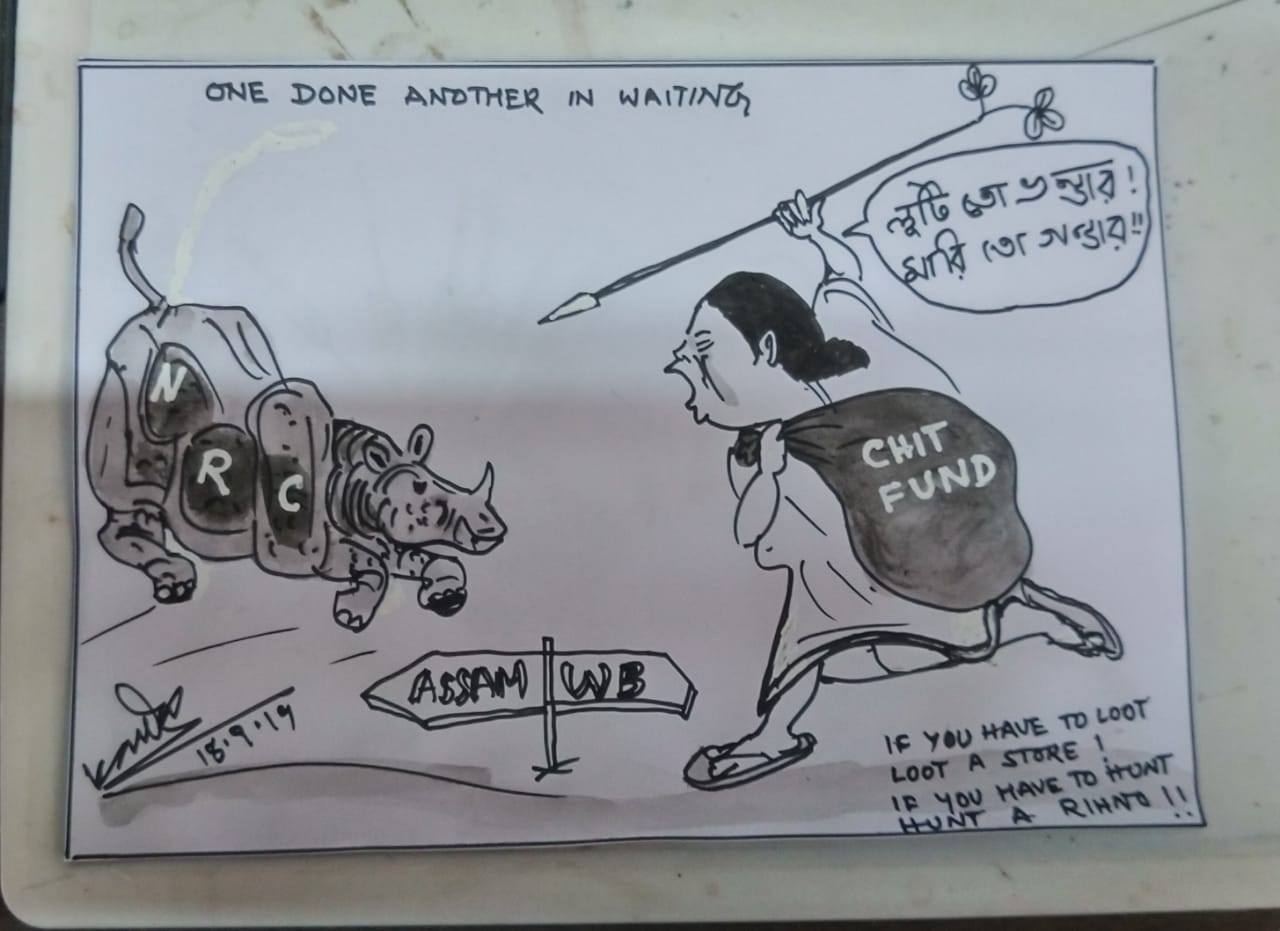 ONE DONE ANOTHER IN WAITING
লুটি তো ভান্ডার!
মারি তো গন্ডার!!
N
R
C
CHIT
FUND
ASSAM WB
18.9.19
IF YOU HAVE TO LOOT
LOOT A STORE !
IF YOU HAVE TO HUNT
HUNT A RIHNO !!